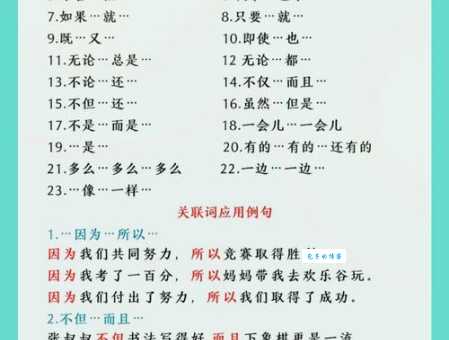 7.如果…就… 8.只要…就…
9.既…又… 10.即使…也…
11.无论…总是… 12 无论…都…
13.不论…还… 14.不仅…而且…
15.不但…还… 16.虽然…但是…
17.不是…而是… 18.一会儿…一会儿
19.…是… 20.有的…有的…还有的
21.多么…多么…多么 22.一边…一边…
23.…像…一样…
关联词应用例句
1.…因为…所以…
因为我们共同努力，所以竞赛取得胜
因为我考了一百分，所以妈妈带我去欢乐谷玩。
因为我们付出了努力，所以我们取得了成功。
2.不但…而且…
张叔叔不但书法写得好，而且下象棋更是一流